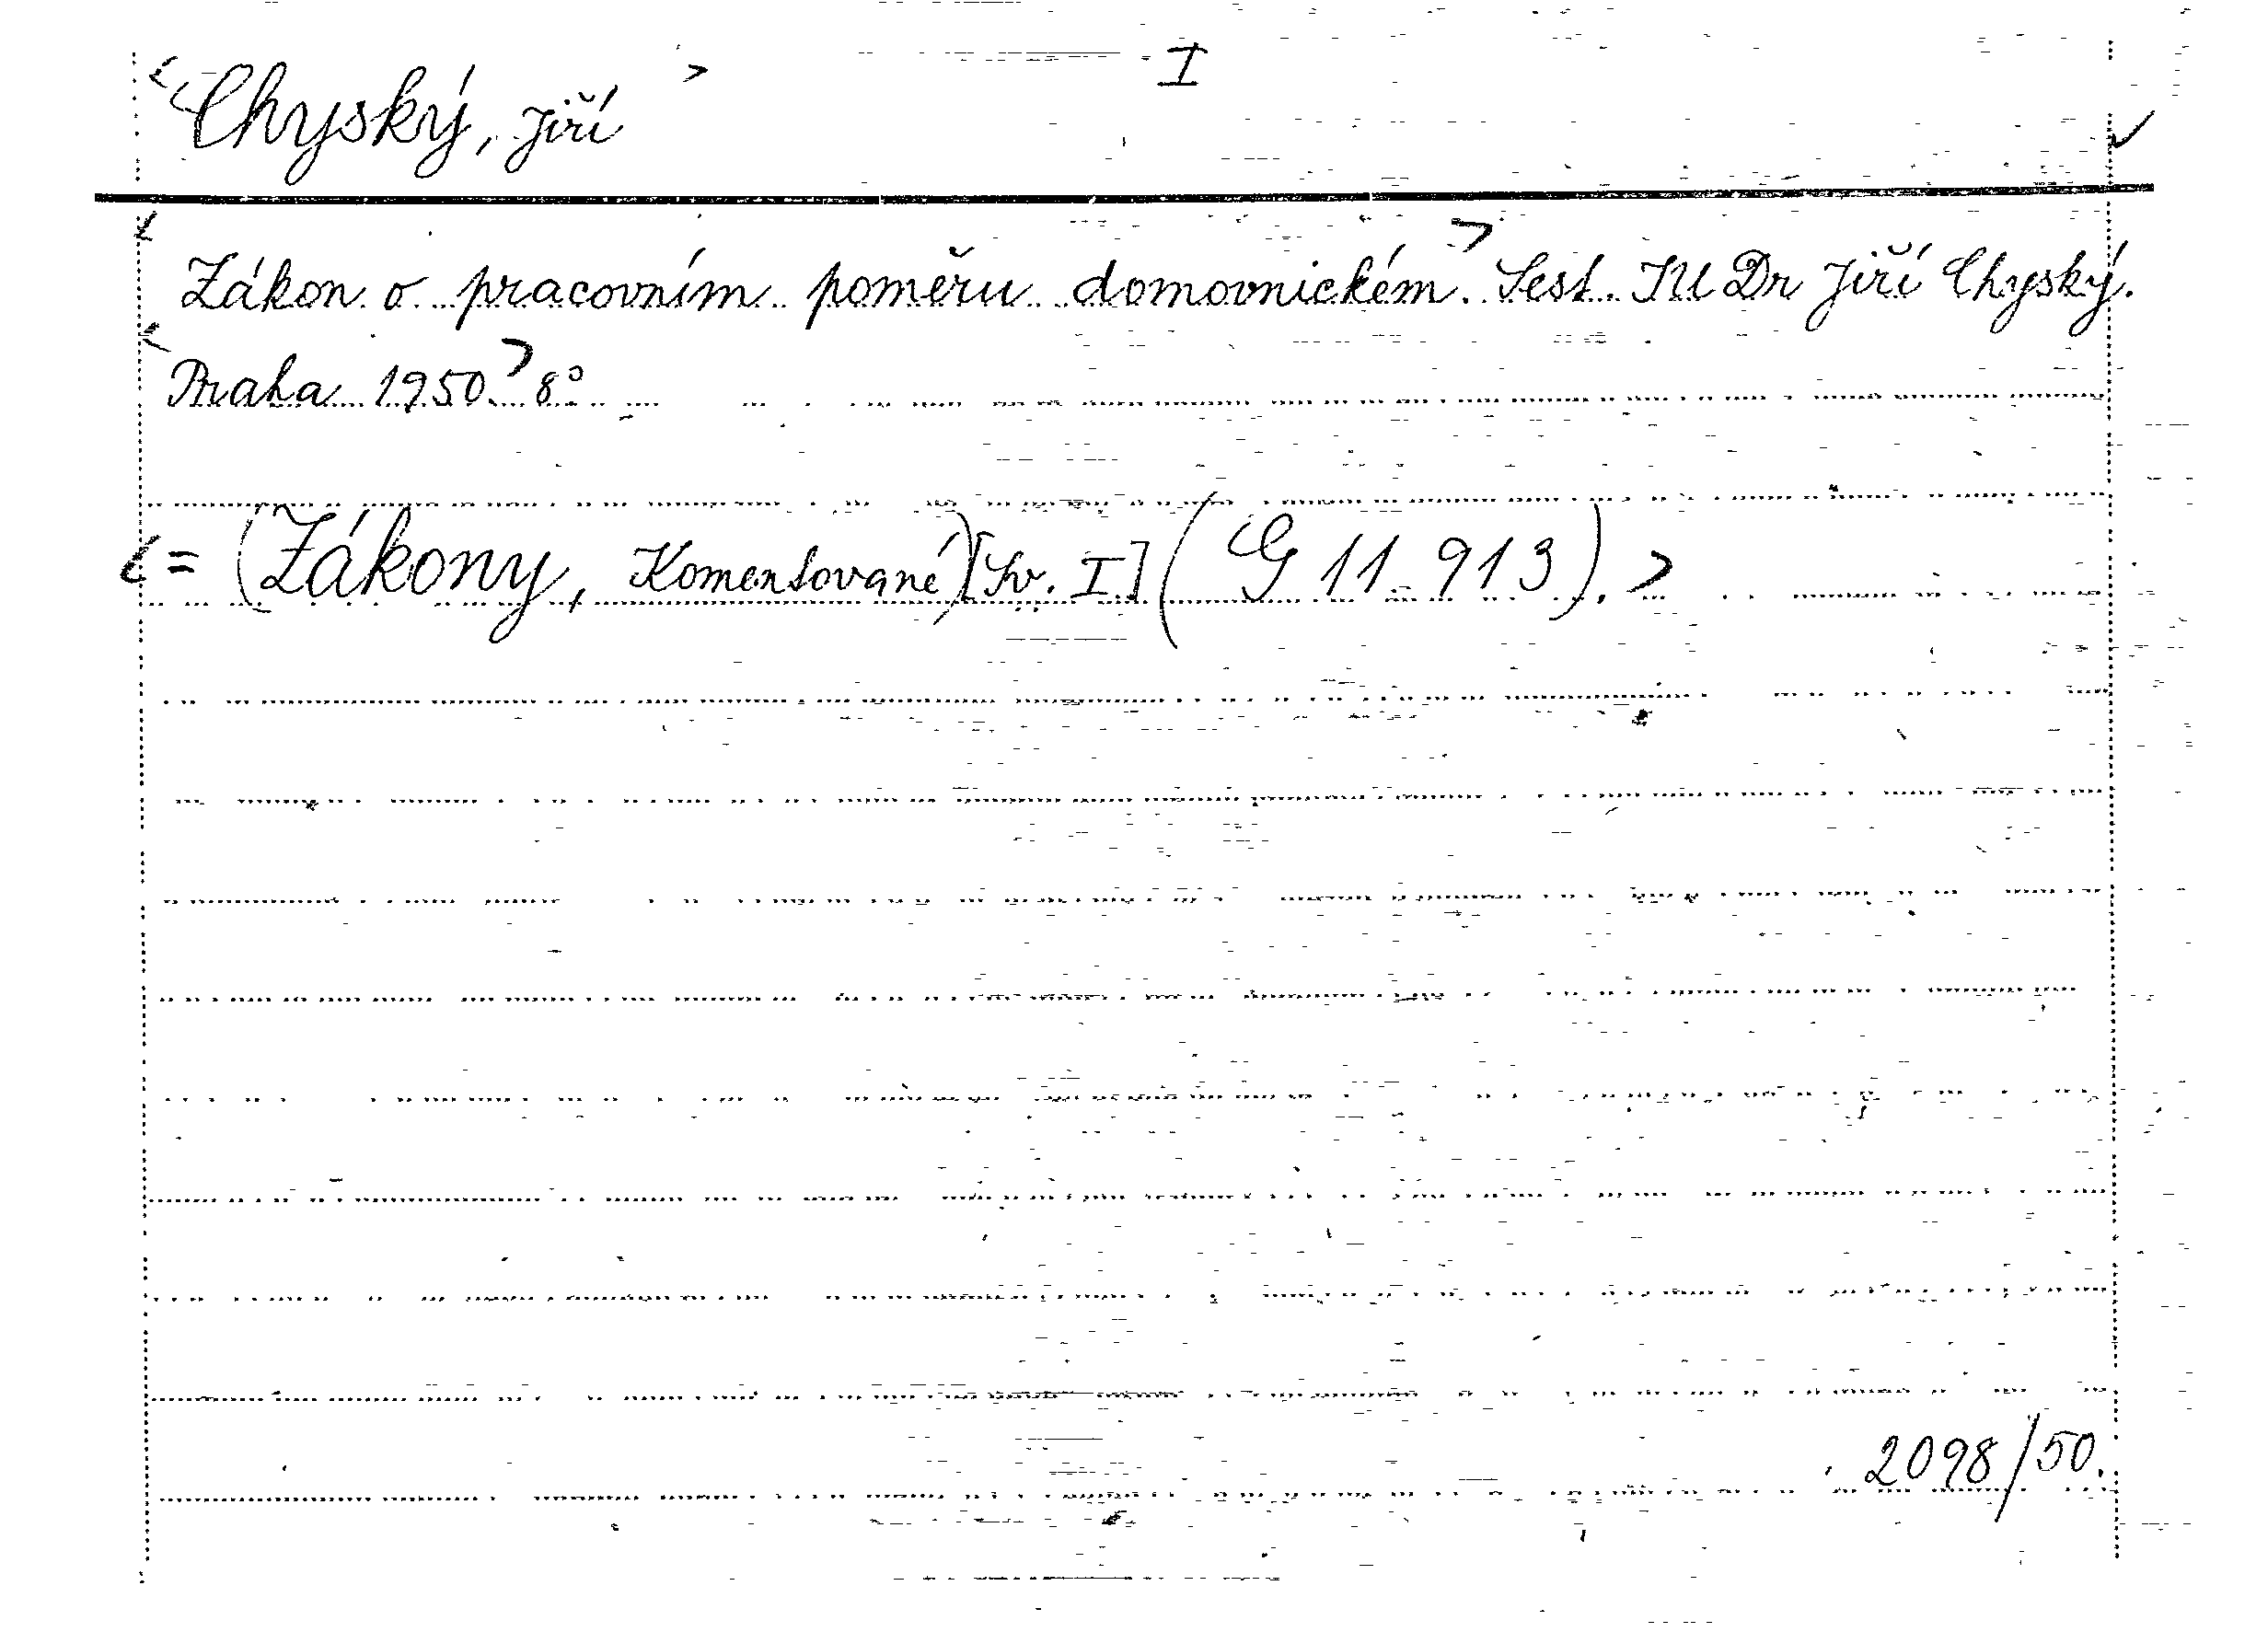 I
<Chyský, Jiří>
<Zákon o pracovním poměru domovnickém.> Sest. JUDr Jiří Chyský.
<Praha 1950.> 8°
<= (Zákony, Komentované) [Sv. I] (G 11.913).>
2098/50.